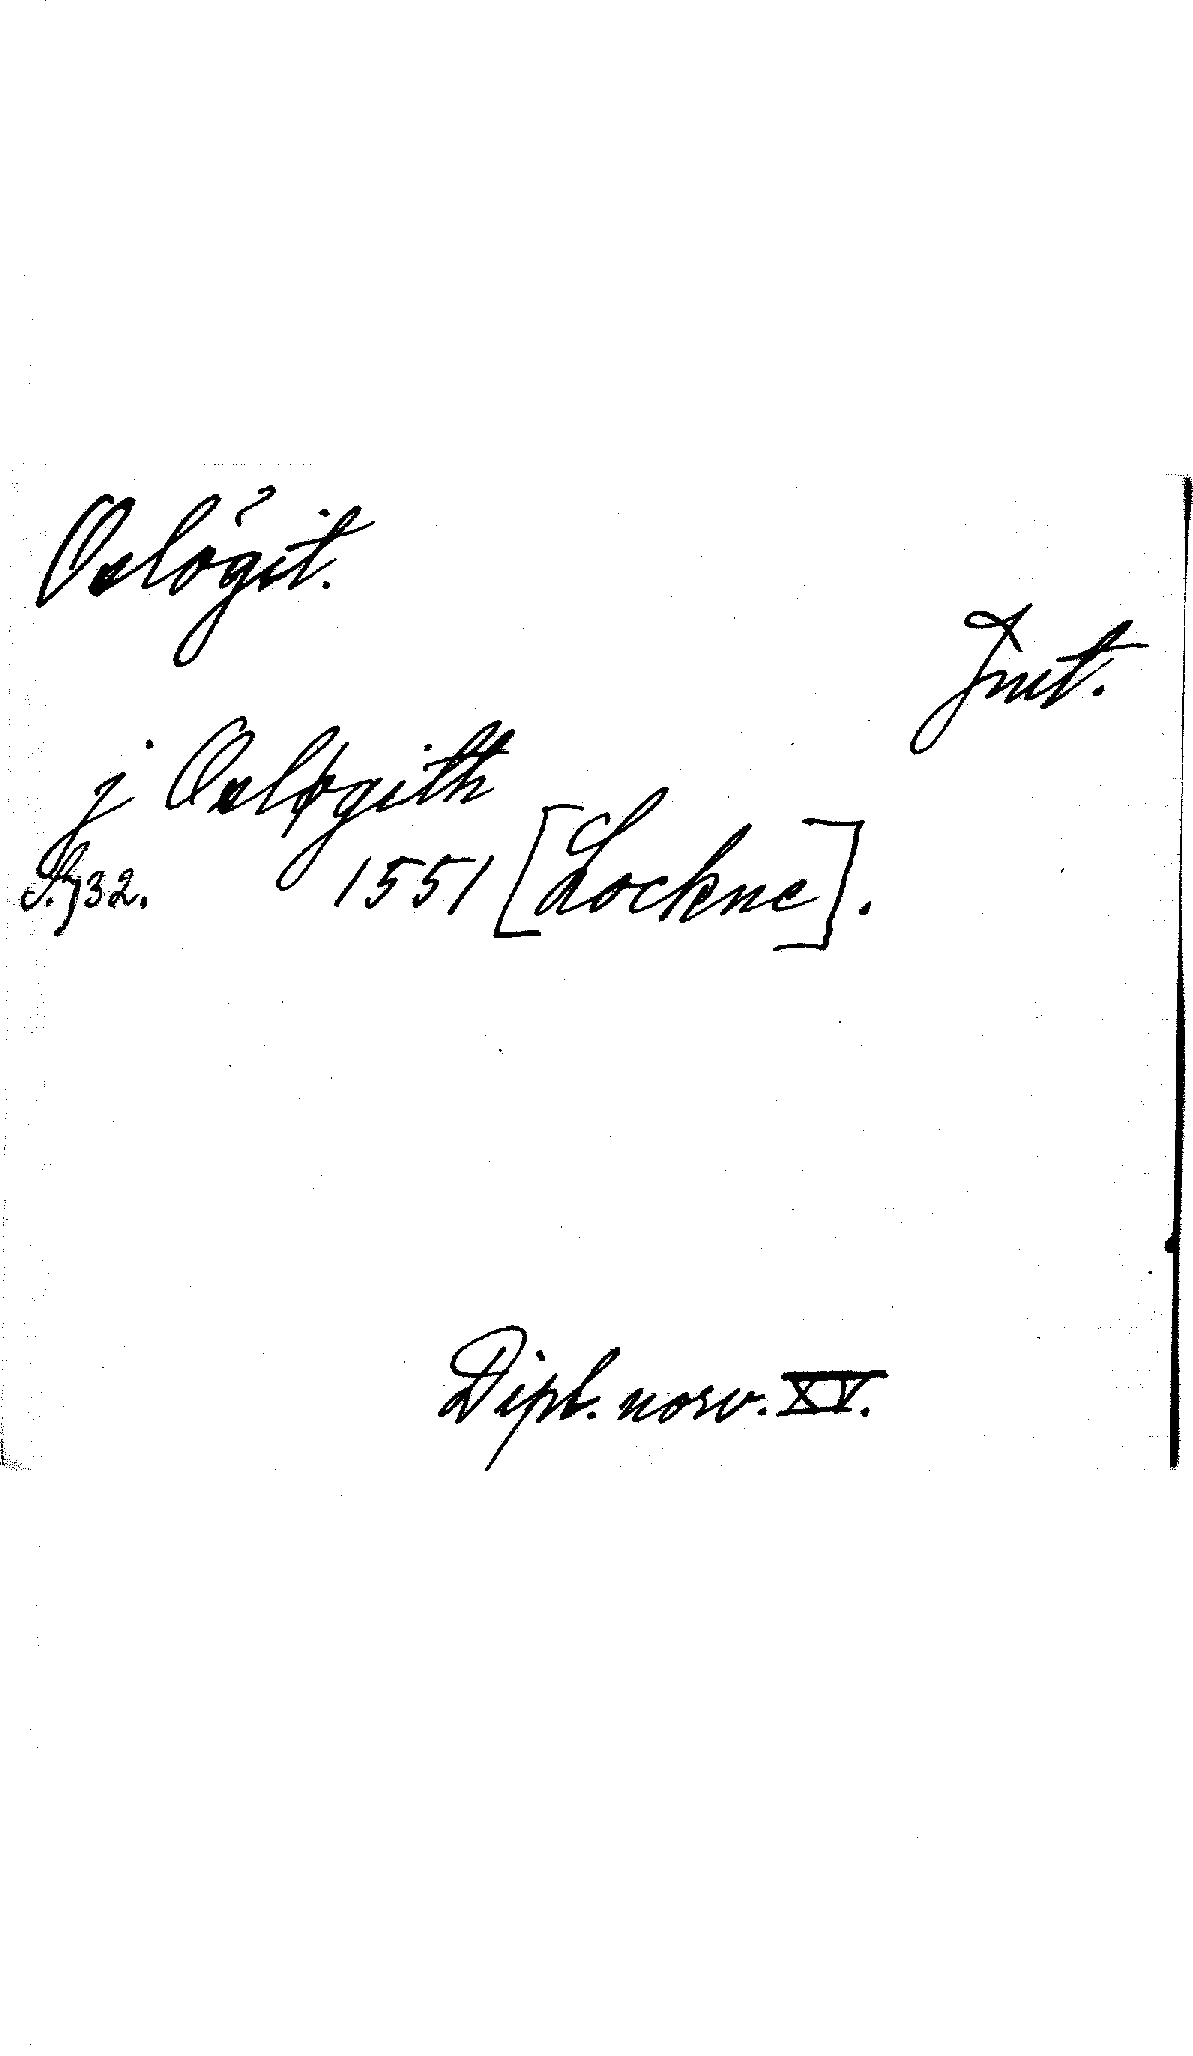 Oslögit.
Jmt.
j Osløgith
S. 732. 1551 [Lockne].
Dipl. norv. XV.